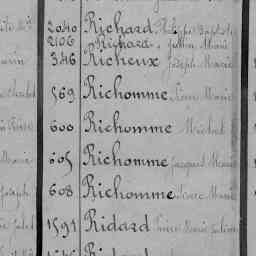 2040 Richard, Philippe Baptiste
2106 Richard, Marie
346 Richeux Joseph Marie
569 Richomme Pierre Marie
600 Richomme Michel
605 Richomme Jacques Marie
608 Richomme Pierre Marie
1591 Ridard Pierre Marie